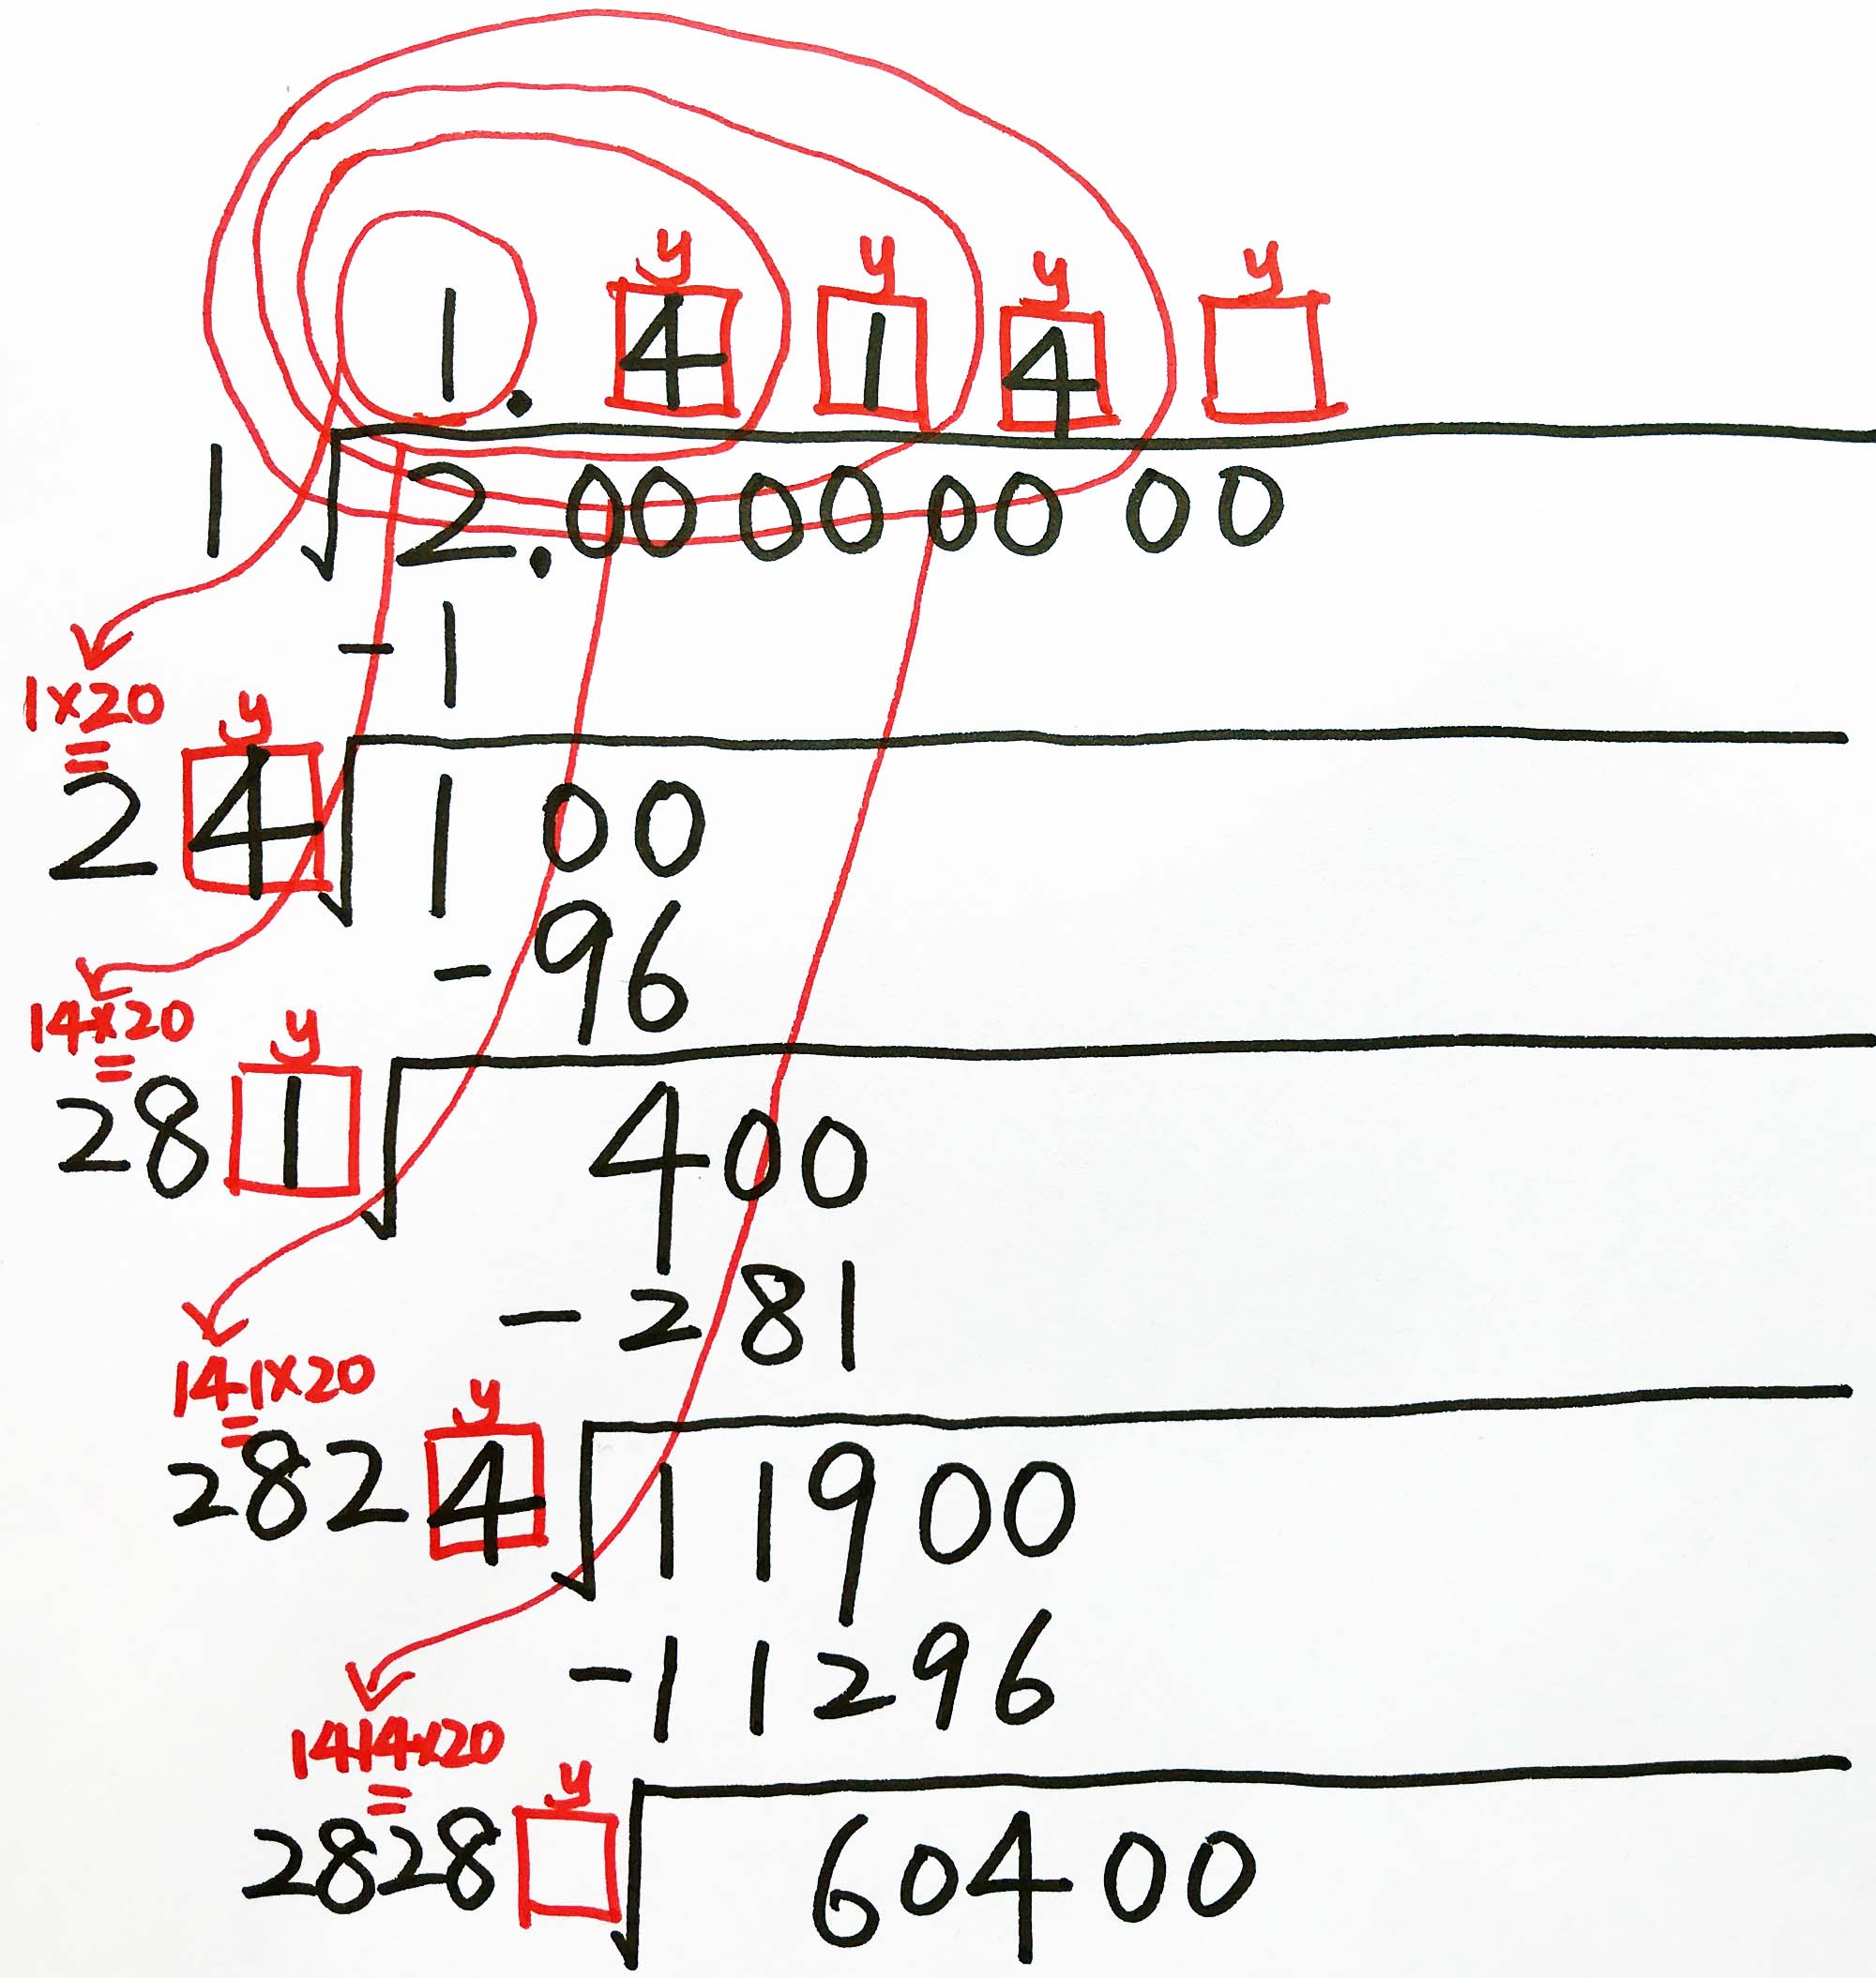 y y y y
1. 4 1 4
1 √2.00 00 00 00
- 1
1×20 y
=
2 4 √1 00
- 96
14×20 y
=
28 1 √400
- 281
141×20 y
=
282 4 √11900
- 11296
1414×20 y
=
2828 √60400